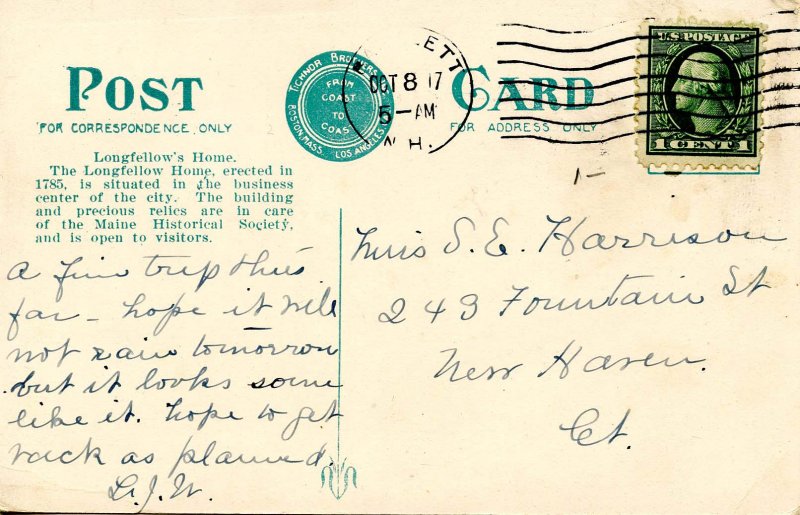 POST CARD
FOR CORRESPONDENCE ONLY
FOR ADDRESS ONLY
TICHNOR BROTHERS
FROM
COAST
TO
COAST
BOSTON, MASS. LOS ANGELES
ETT
OCT 8 17
5-AM
N.H.
U.S. POSTAGE
1 CENT 1
Longfellow's Home.
The Longfellow Home, erected in
1785, is situated in the business
center of the city. The building
and precious relics are in care
of the Maine Historical Society,
and is open to visitors.
A fine trip thus
far – hope it will
not rain tomorrow
but it looks some
like it. hope to get
back as planned.
L.J.W.
Miss S. E. Harrison
243 Fountain St
New Haven.
Ct.